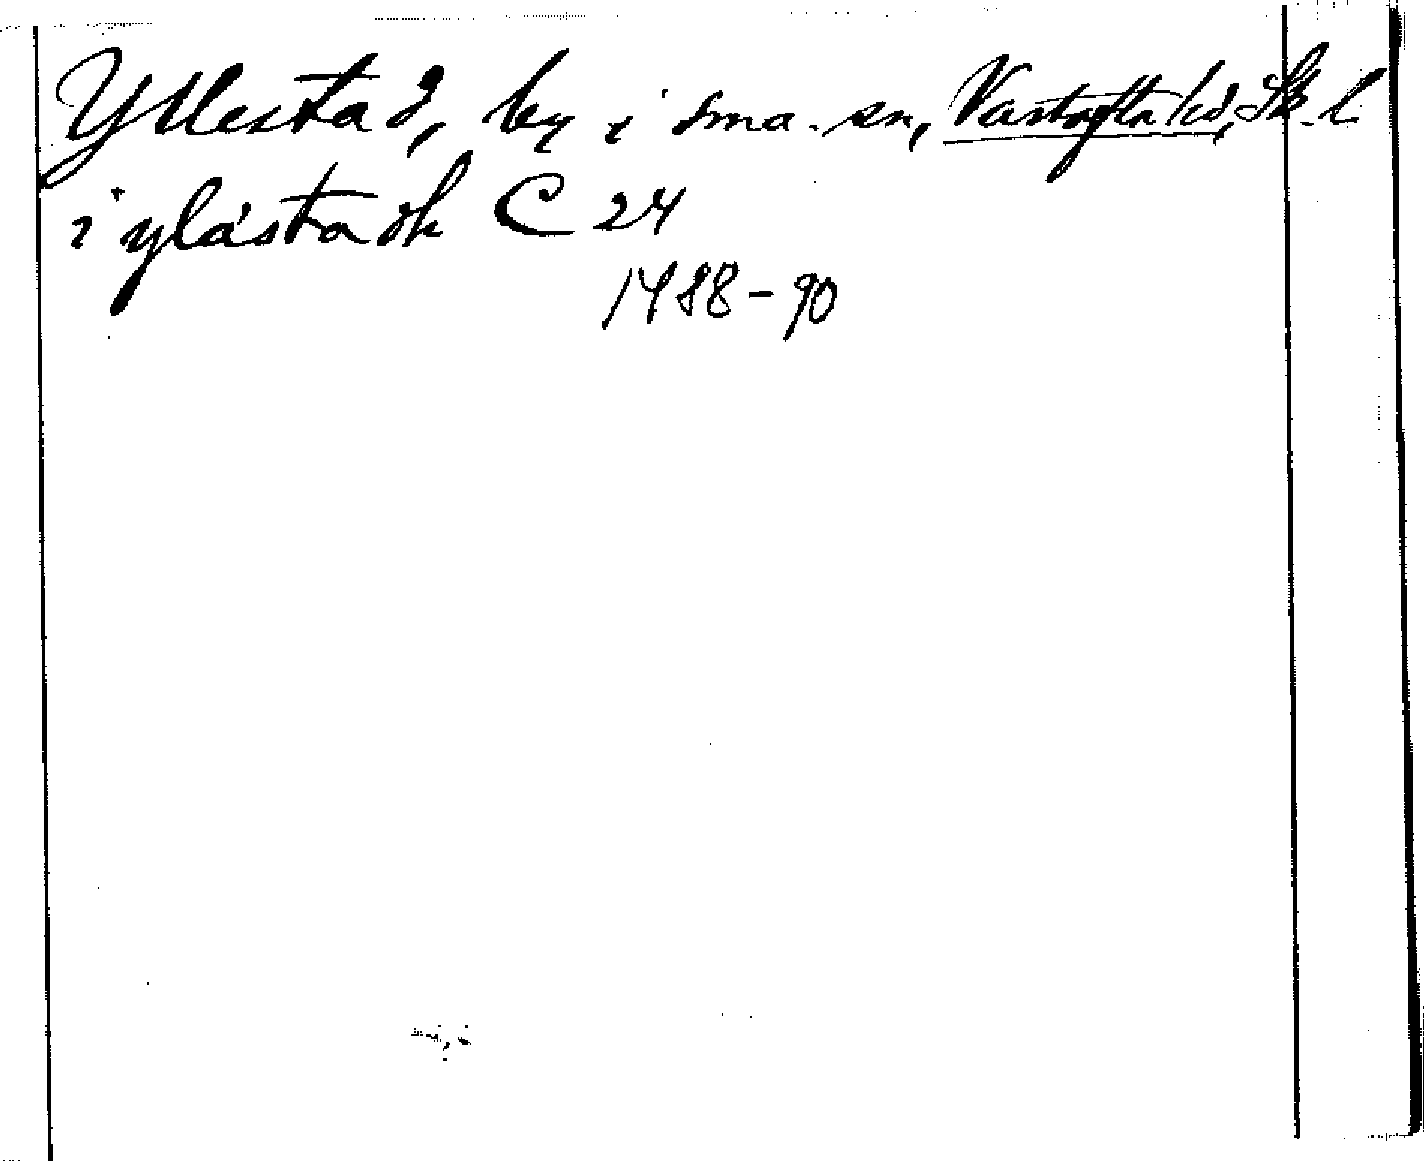 Yllestad, by i sma. sn, Vartofta hd, Sk. l
i ylåsta ök C 24
1488-90